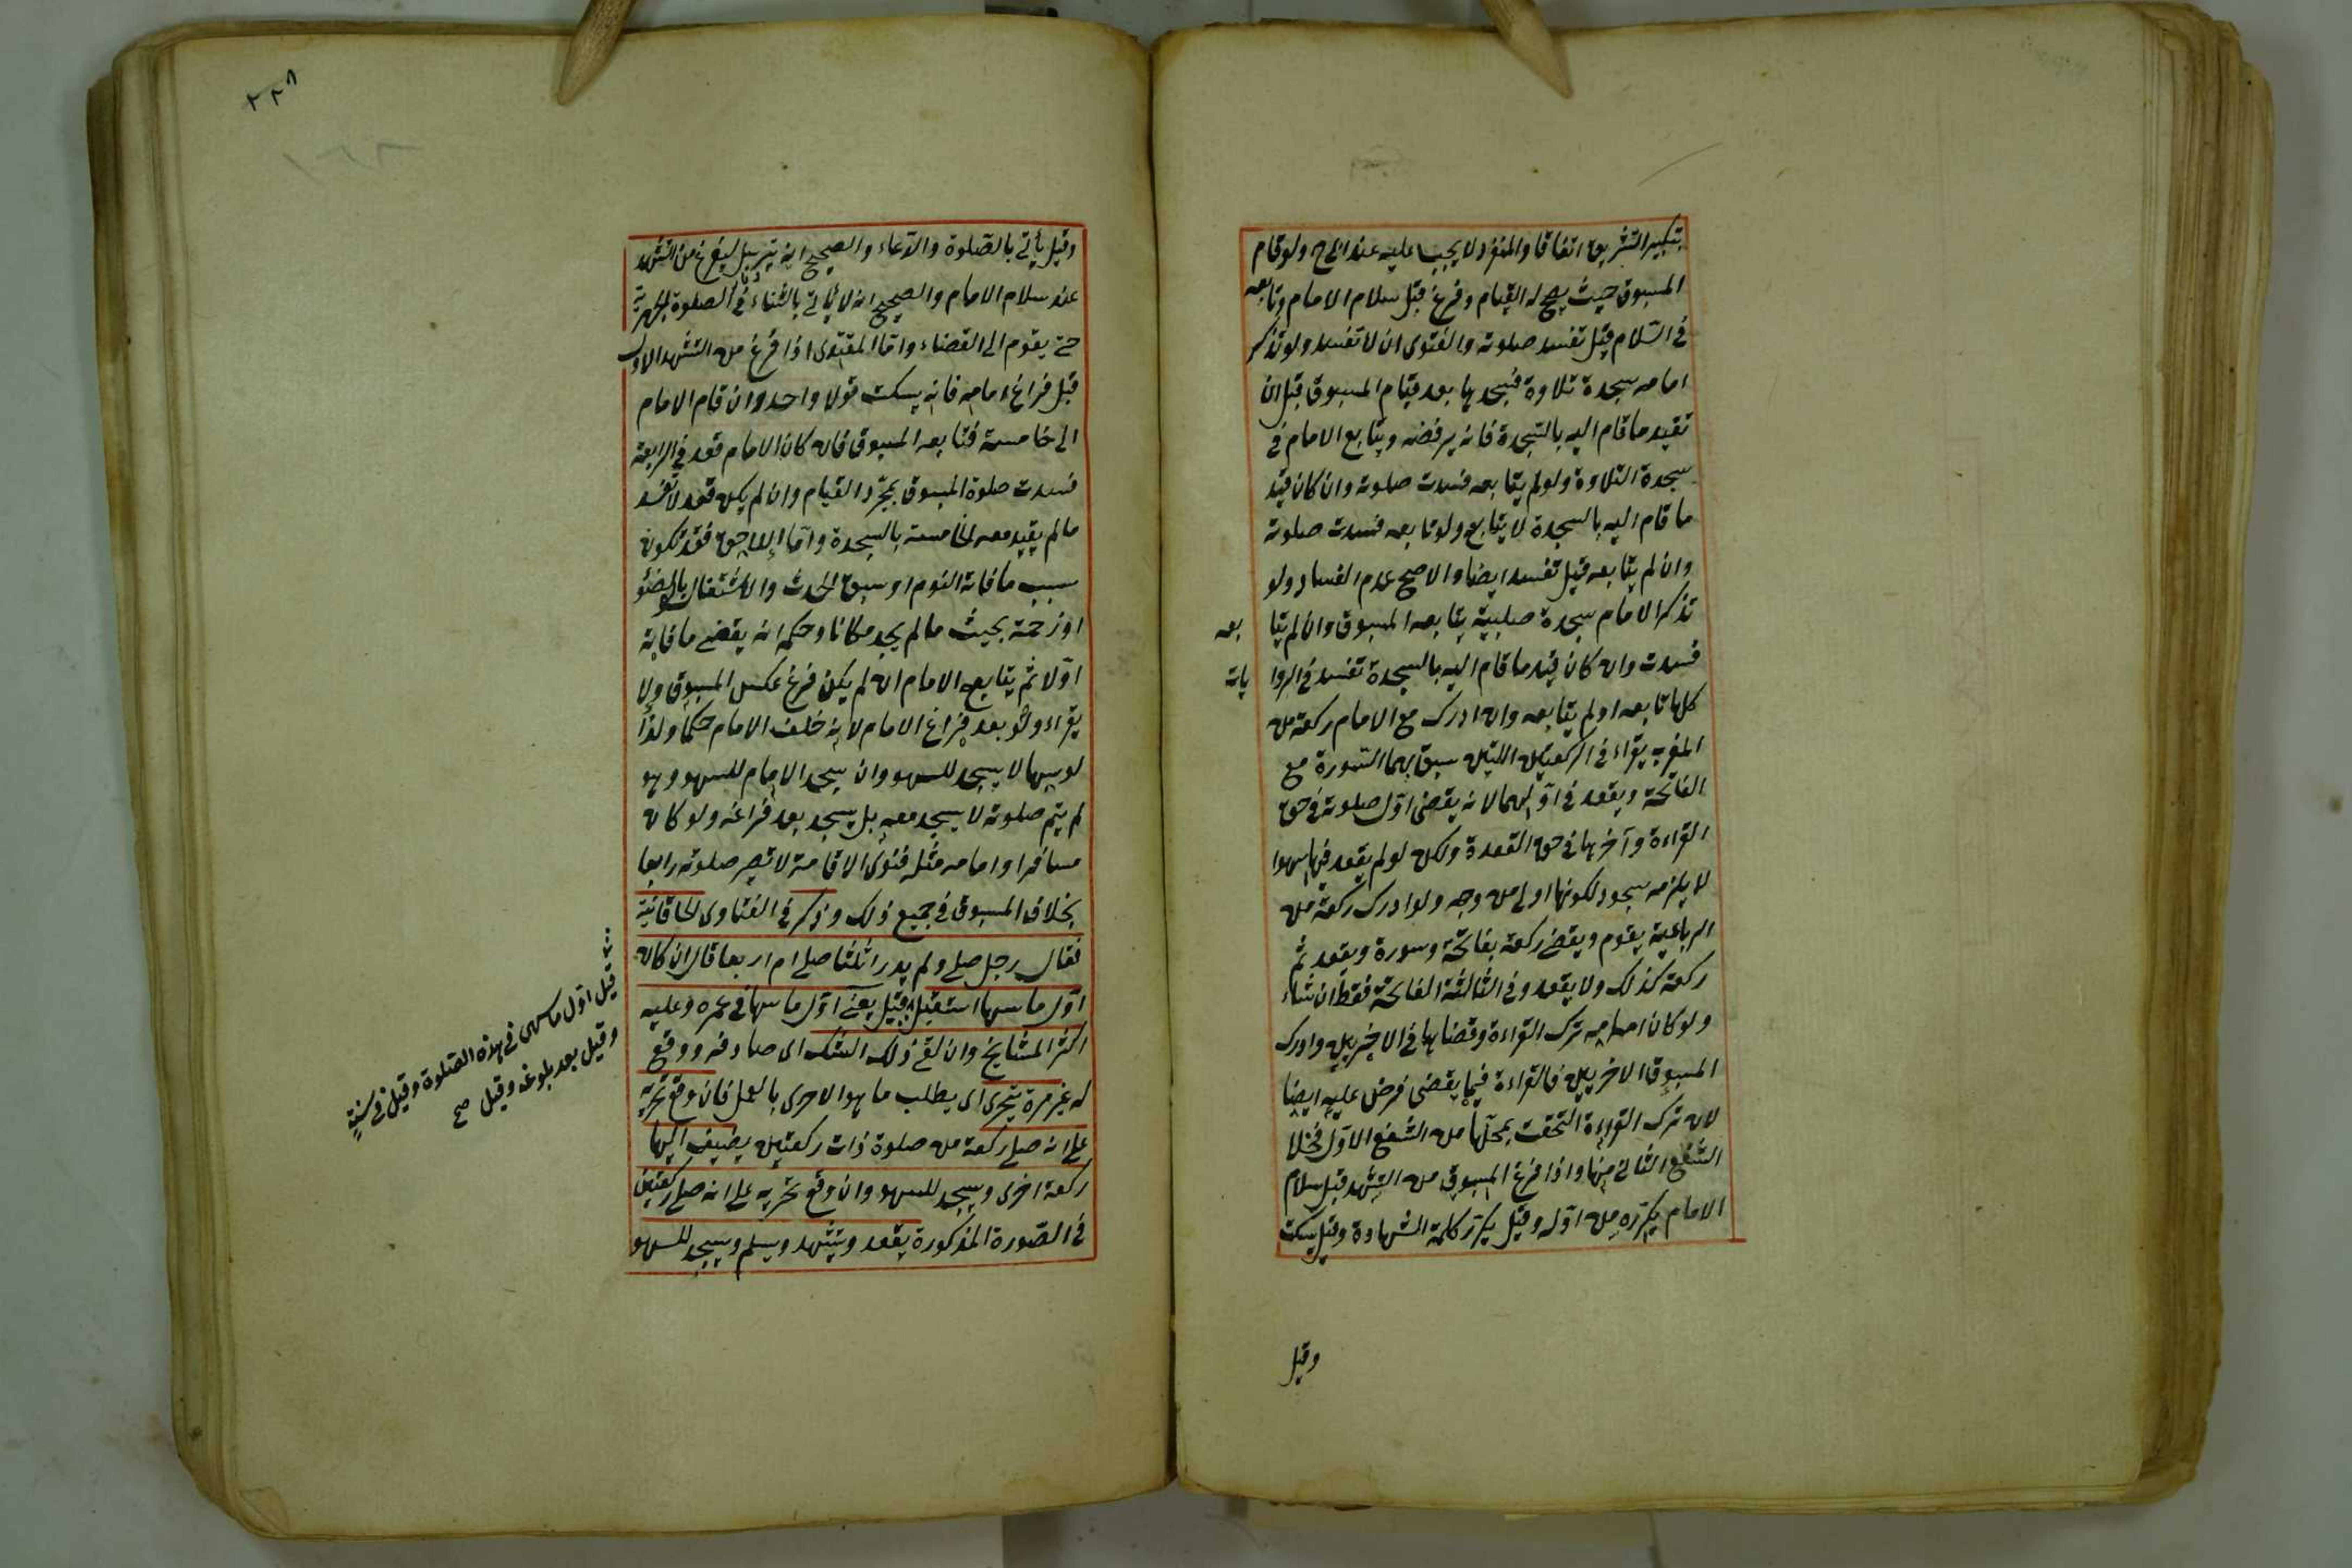 بتكبير التشريق اتفاقا والمنفرد لا يجب عليه عند ابي ح ولو قام
المسبوق حيث يصح له القيام وفرغ قبل سلام الامام وتابعه
في السّلام قيل تفسد صلوته والفتوى ان لا تفسد ولو تذكر
امامه سجدة تلاوة فسجدها بعد قيام المسبوق قبل ان
تقيد ما قام اليه بالسّجدة فانه يرفضه ويتابع الامام في
سجدة التلاوة ولو لم يتابعه فسدت صلوته وان كان قيّد
ما قام اليه بالسجدة لا يتابع ولو تابعه فسدت صلوته
وان لم يتابعه قيل تفسد ايضا والاصح عدم الفساد ولو
تذكر الامام سجدة صلبية يتابعه المسبوق وان لم يتا بعه
فسدت وان كان قيّد ما قام اليه بالسجدة تفسد في الروا يات
كلها تابعه او لم يتابعه وان ادرك مع الامام ركعة من
المغرب يقراء في الركعتين اللتين سبق بهما السّورة مع
الفاتحة ويقعد في اوّلهما لانه يقضى اوّل صلوته في حق
القراءة وآخرها في حق القعدة ولكن لو لم يقعد فيها سهوا
لا يلزمه سجود لكونها اولى من وجه ولو ادرك ركعة من
الرباعية يقوم ويقضى ركعة بفاتحة وسورة ويقعد ثم
ركعة كذلك ولا يقعد وفي الثالثة الفاتحة فقط ان شاء
ولو كان امامه ترك القراءة وقضاها في الاخريين وادرك
المسبوق الاخريين فالقراءة فيما يقضى فرض عليه ايضا
لان ترك القراءة التحقت بمحلّها من الشفع الاوّل فخلا
الشفع الثانى منها واذا فرغ المسبوق من التشهد قبل سلام
الامام يكرّره من اوّله وقيل يكرّر كلمة الشهادة وقيل يسكت
وقيل
٢٢٨
وقيل يأتى بالصّلوة والدّعاء والصحيح انه يترسل ليفرغ من التشهد
عند سلام الامام والصحيح انه لا يأتى بالثناء في الصلوة الجهرية
حتى يقوم الى القضاء وامّا المقتدى اذا فرغ من التشهد الاول
قبل فراغ امامه فانه يسكت قولا واحدا وان قام الامام
الى خامسة فتابعه المسبوق فان كان الامام قعد في الرابعة
فسدت صلوة المسبوق بمجرّد القيام وان لم يكن قعد لا تفسد
ما لم يقيد معه الخامسة بالسجدة وامّا اللاحق فقد تكون
سبب ما فاته النوم او سبق الحدث والاشتغال بالوضوء
او زحمة بحيث ما لم يجد مكانا وحكمه انه يقضى ما فاته
اوّلا ثم يتابع الامام ان لم يكن فرغ عكس المسبوق ولا
يقراء ولو بعد فراغ الامام لانه خلف الامام حكما ولذا
لو سها لا يسجد للسهو وان سجد الامام للسهو وهو
لم يتم صلوته لا يسجد معه بل يسجد بعد فراغه ولو كان
مسافرا وامامه مثله فنوى الاقامة لا تصير صلوته رابعا
بخلاف المسبوق في جميع ذلك وذكر في الفتاوى الخاقانية
فقال رجل صلى ولم يدر اثلثا صلى ام اربعا قال ان كان
اوّل ما سها استقبل قيل يعنى اوّل ما سها في عمره وعليه
اكثر المشايخ وان لقى ذلك الشك اى صادفه ووقع
له غير مرة يتحرى اى يطلب ما هو الاحرى بالعمل فان وقع تحريه
على انه صلى ركعة من صلوة ذات ركعتين يضيف اليها
ركعة اخرى ويسجد للسهو وان وقع تحريه على انه صلى ركعتين
في الصّورة المذكورة يقعد ويتشهد ويسلم ويسجد للسهو
قيل اوّل ما سهى في هذه الصّلوة وقيل في سنة
وقيل بعد بلوغه وقيل صح